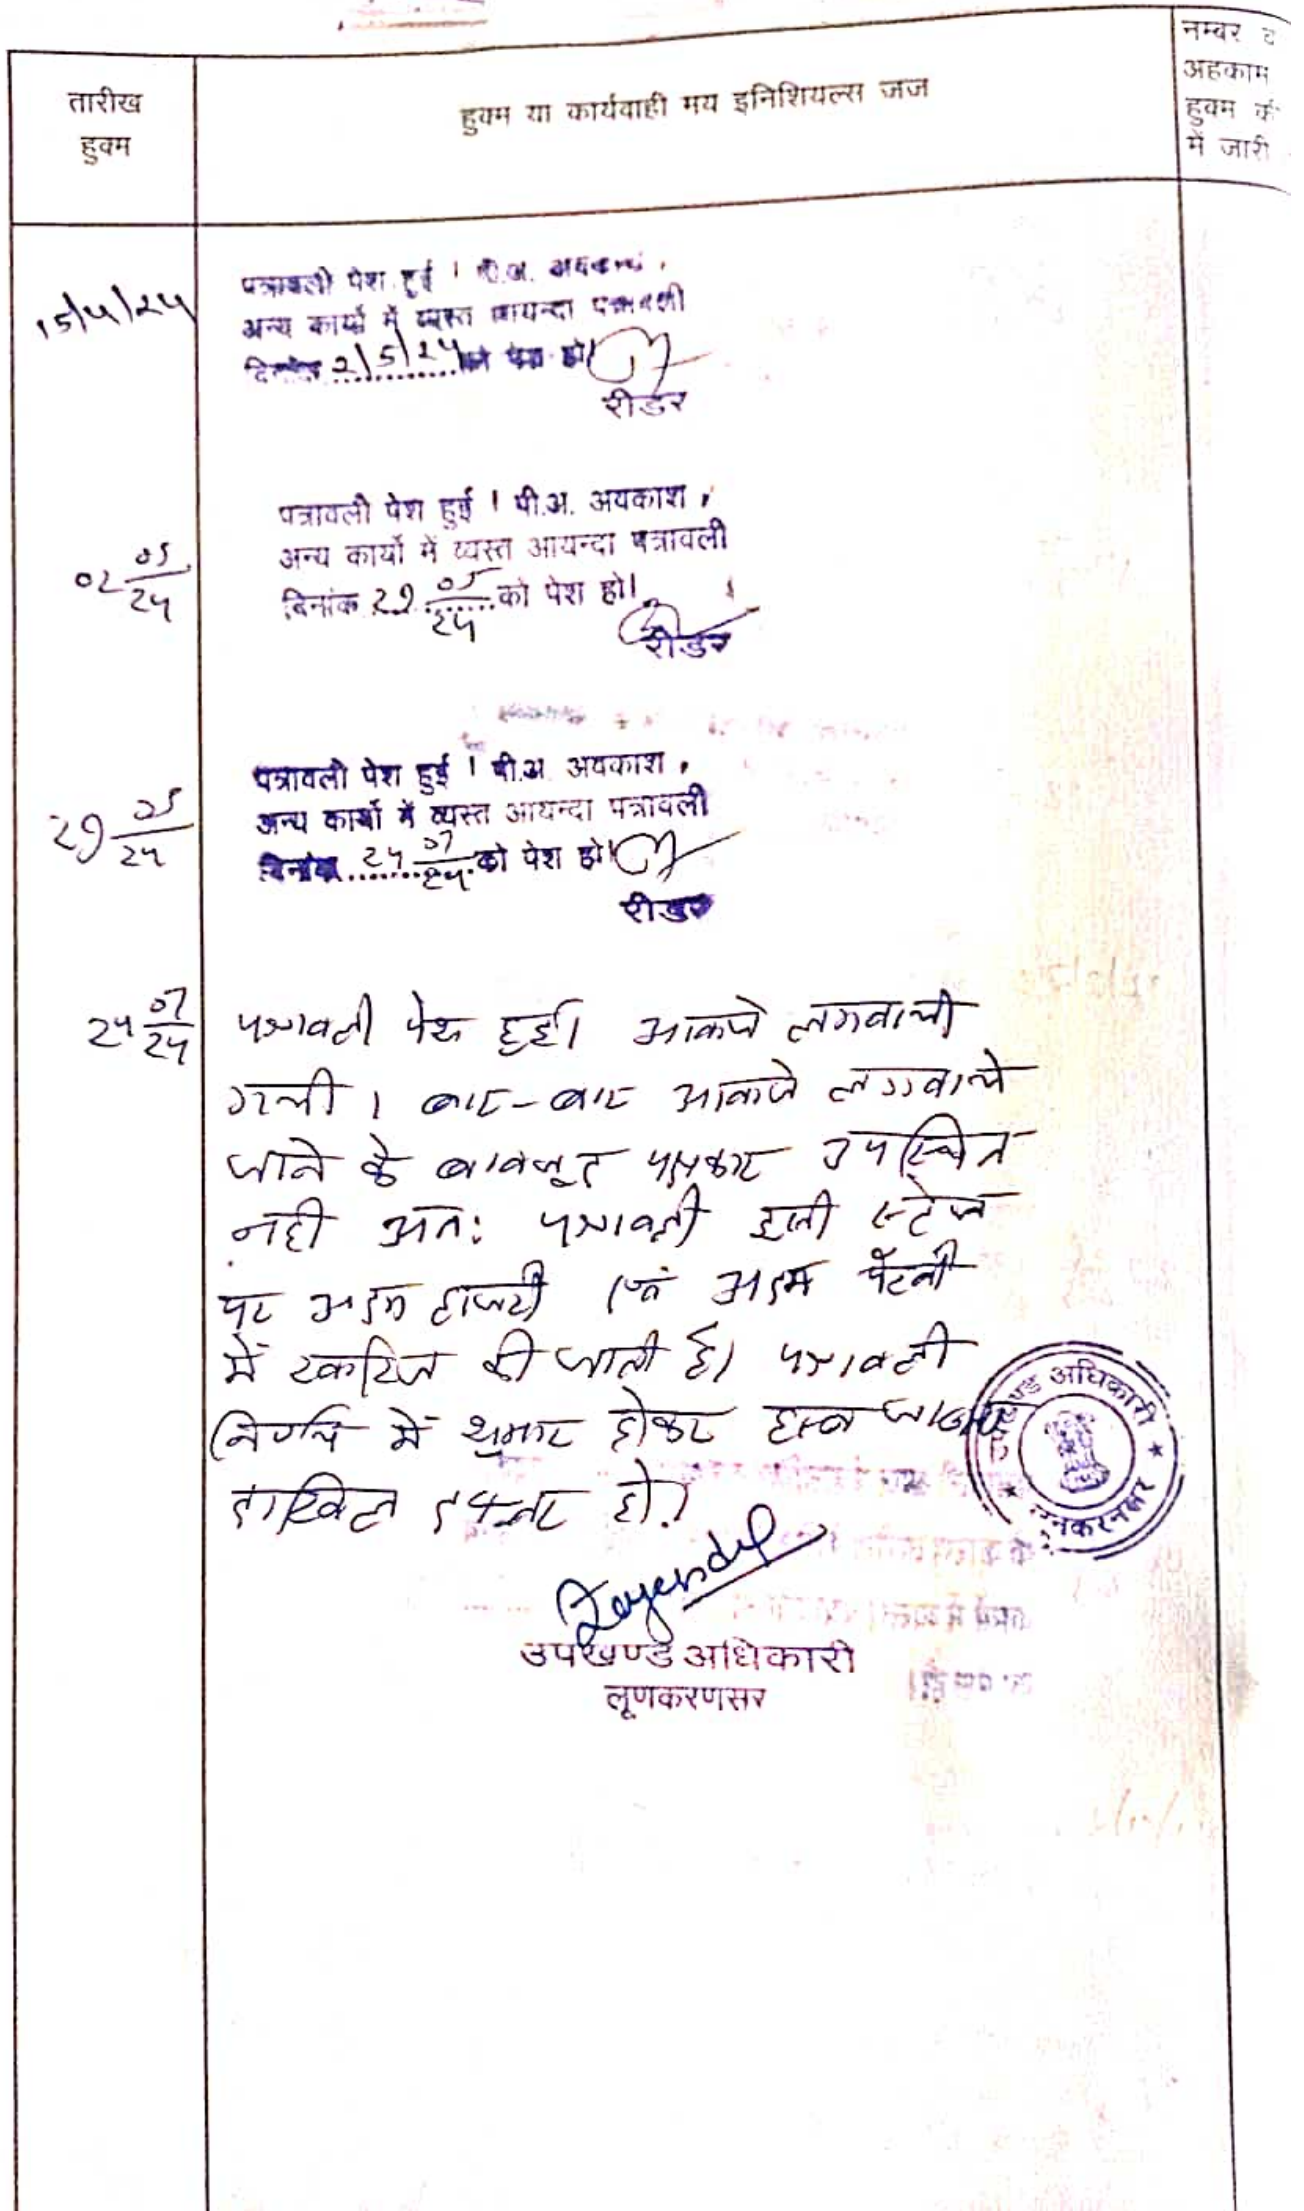 तारीख
हुक्म
हुक्म या कार्यवाही मय इनिशियल्स जज
नम्बर व
अहकाम
हुक्म की
में जारी
15/4/24
पत्रावली पेश हुई । पी.अ. अवकाश,
अन्य कार्यो में व्यस्त आयन्दा पत्रावली
दिनांक 2/5/24 को पेश हो।
रीडर
02 05/24
पत्रावली पेश हुई । पी.अ. अवकाश,
अन्य कार्यो में व्यस्त आयन्दा पत्रावली
दिनांक 29 05/24 को पेश हो।
रीडर
29 05/24
पत्रावली पेश हुई । पी.अ. अवकाश,
अन्य कार्यो में व्यस्त आयन्दा पत्रावली
दिनांक 24 07/24 को पेश हो।
रीडर
24 07/24
पत्रावली पेश हुई। आवाजे लगवायी
गयी। बार-बार आवाजे लगवाये
जाने के बावजूद पक्षकार उपस्थित
नही अतः पत्रावली इसी स्टेज
पर अदम हाजरी एवं अदम पैरवी
में खारिज की जाती है। पत्रावली
निर्णय में शुमार होकर
दाखिल दफ्तर हो।
उपखण्ड अधिकारी
लूणकरणसर
अधिकारी